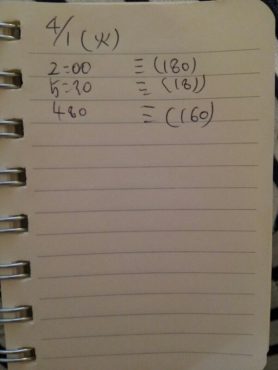 4/1(火)
2:00 ミ(180)
5:30 ミ(181)
480 ミ(160)